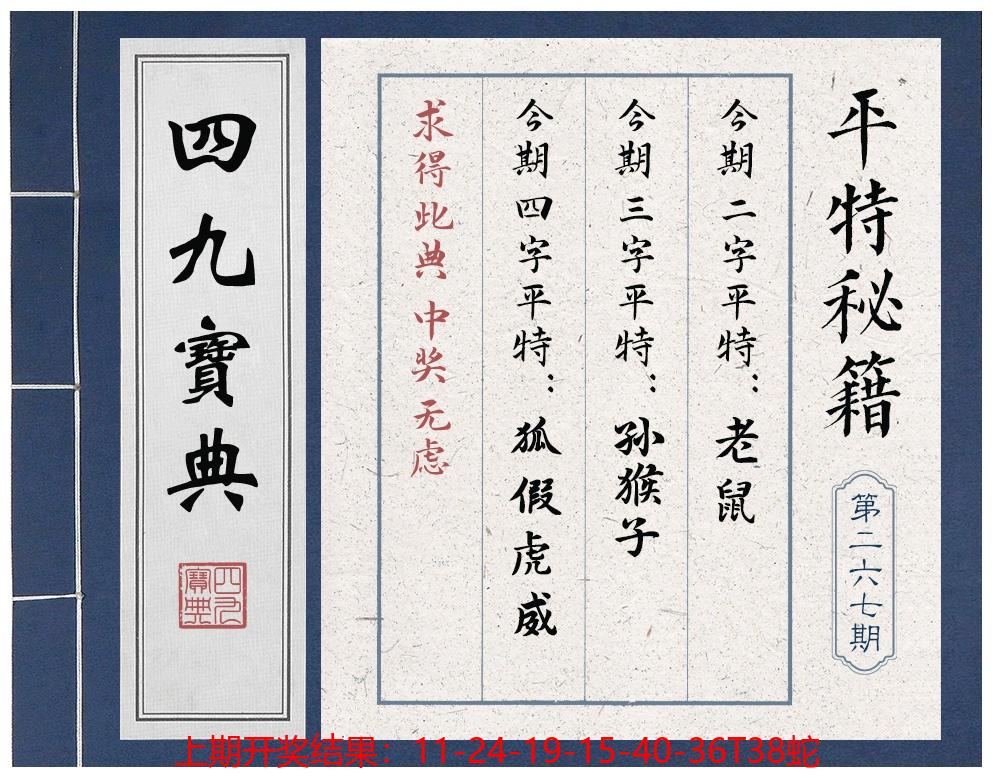 平特秘籍
第二六七期
今期二字平特：老鼠
今期三字平特：孙猴子
今期四字平特：狐假虎威
求得此典 中奖无虑
四九寶典
四九
寶典
上期开奖结果：11-24-19-15-40-36T38蛇